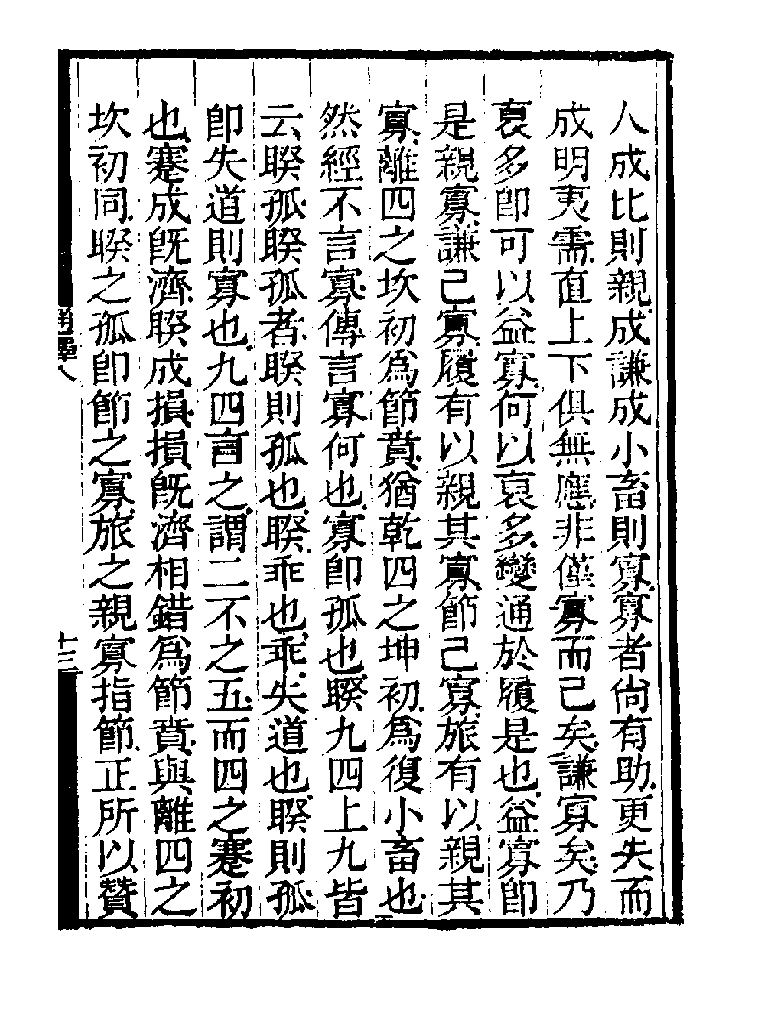 人成比則親成謙成小畜則寡寡者尙有助更失而
成明夷需直上下俱無應非僅寡而已矣謙寡矣乃
裒多卽可以益寡何以裒多變通於履是也益寡卽
是親寡謙己寡履有以親其寡節己寡旅有以親其
寡離四之坎初爲節賁猶乾四之坤初爲復小畜也
然經不言寡傳言寡何也寡卽孤也睽九四上九皆
云睽孤睽孤者睽則孤也睽乖也乖失道也睽則孤
卽失道則寡也九四言之謂二不之五而四之蹇初
也蹇成旣濟睽成損損旣濟相錯爲節賁與離四之
坎初同睽之孤卽節之寡旅之親寡指節正所以贊
通釋八
十三